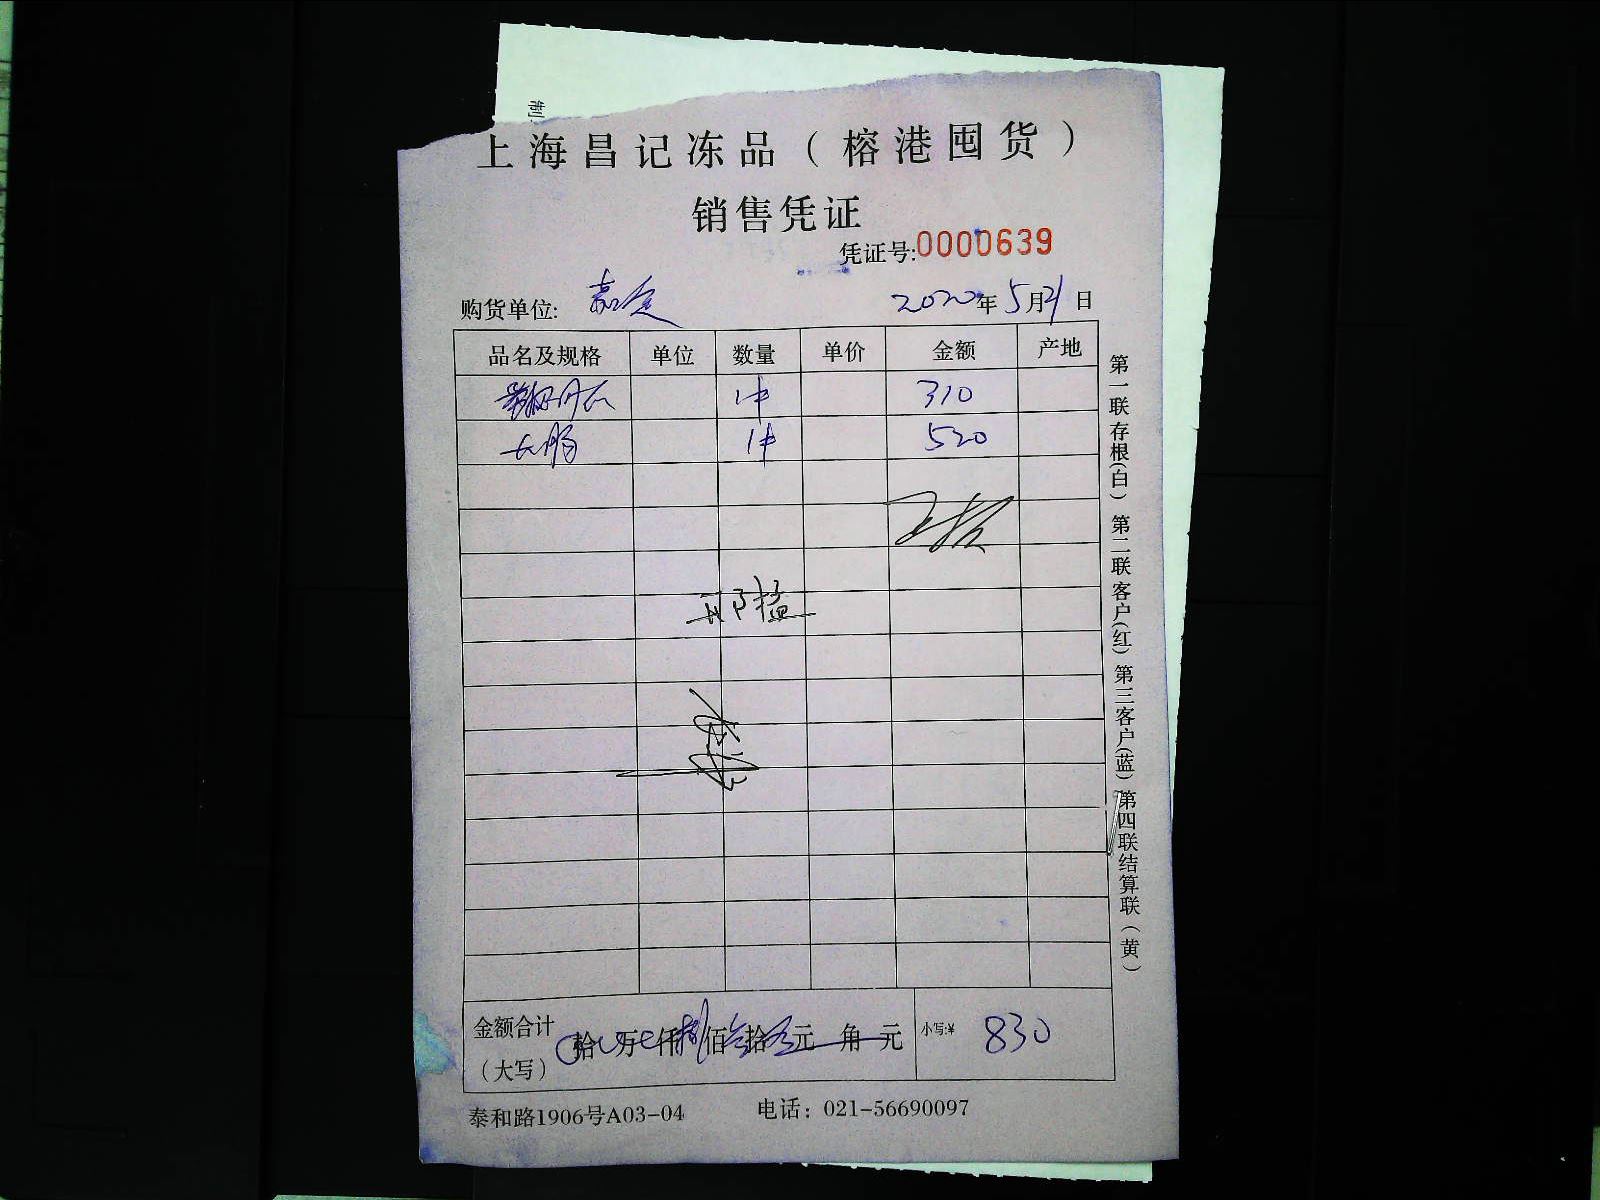 制
上海昌记冻品（榕港囤货）
销售凭证
凭证号:0000639
购货单位: 嘉定 2020年5月21日
品名及规格 单位 数量 单价 金额 产地
1件 310
长肠 1件 520
邢猛
金额合计（大写） 拾 万 仟捌佰叁拾 元 角 元 小写:¥ 830
泰和路1906号A03-04 电话：021-56690097
第一联存根(白）第二联客户(红）第三客户(蓝）第四联结算联（黄）